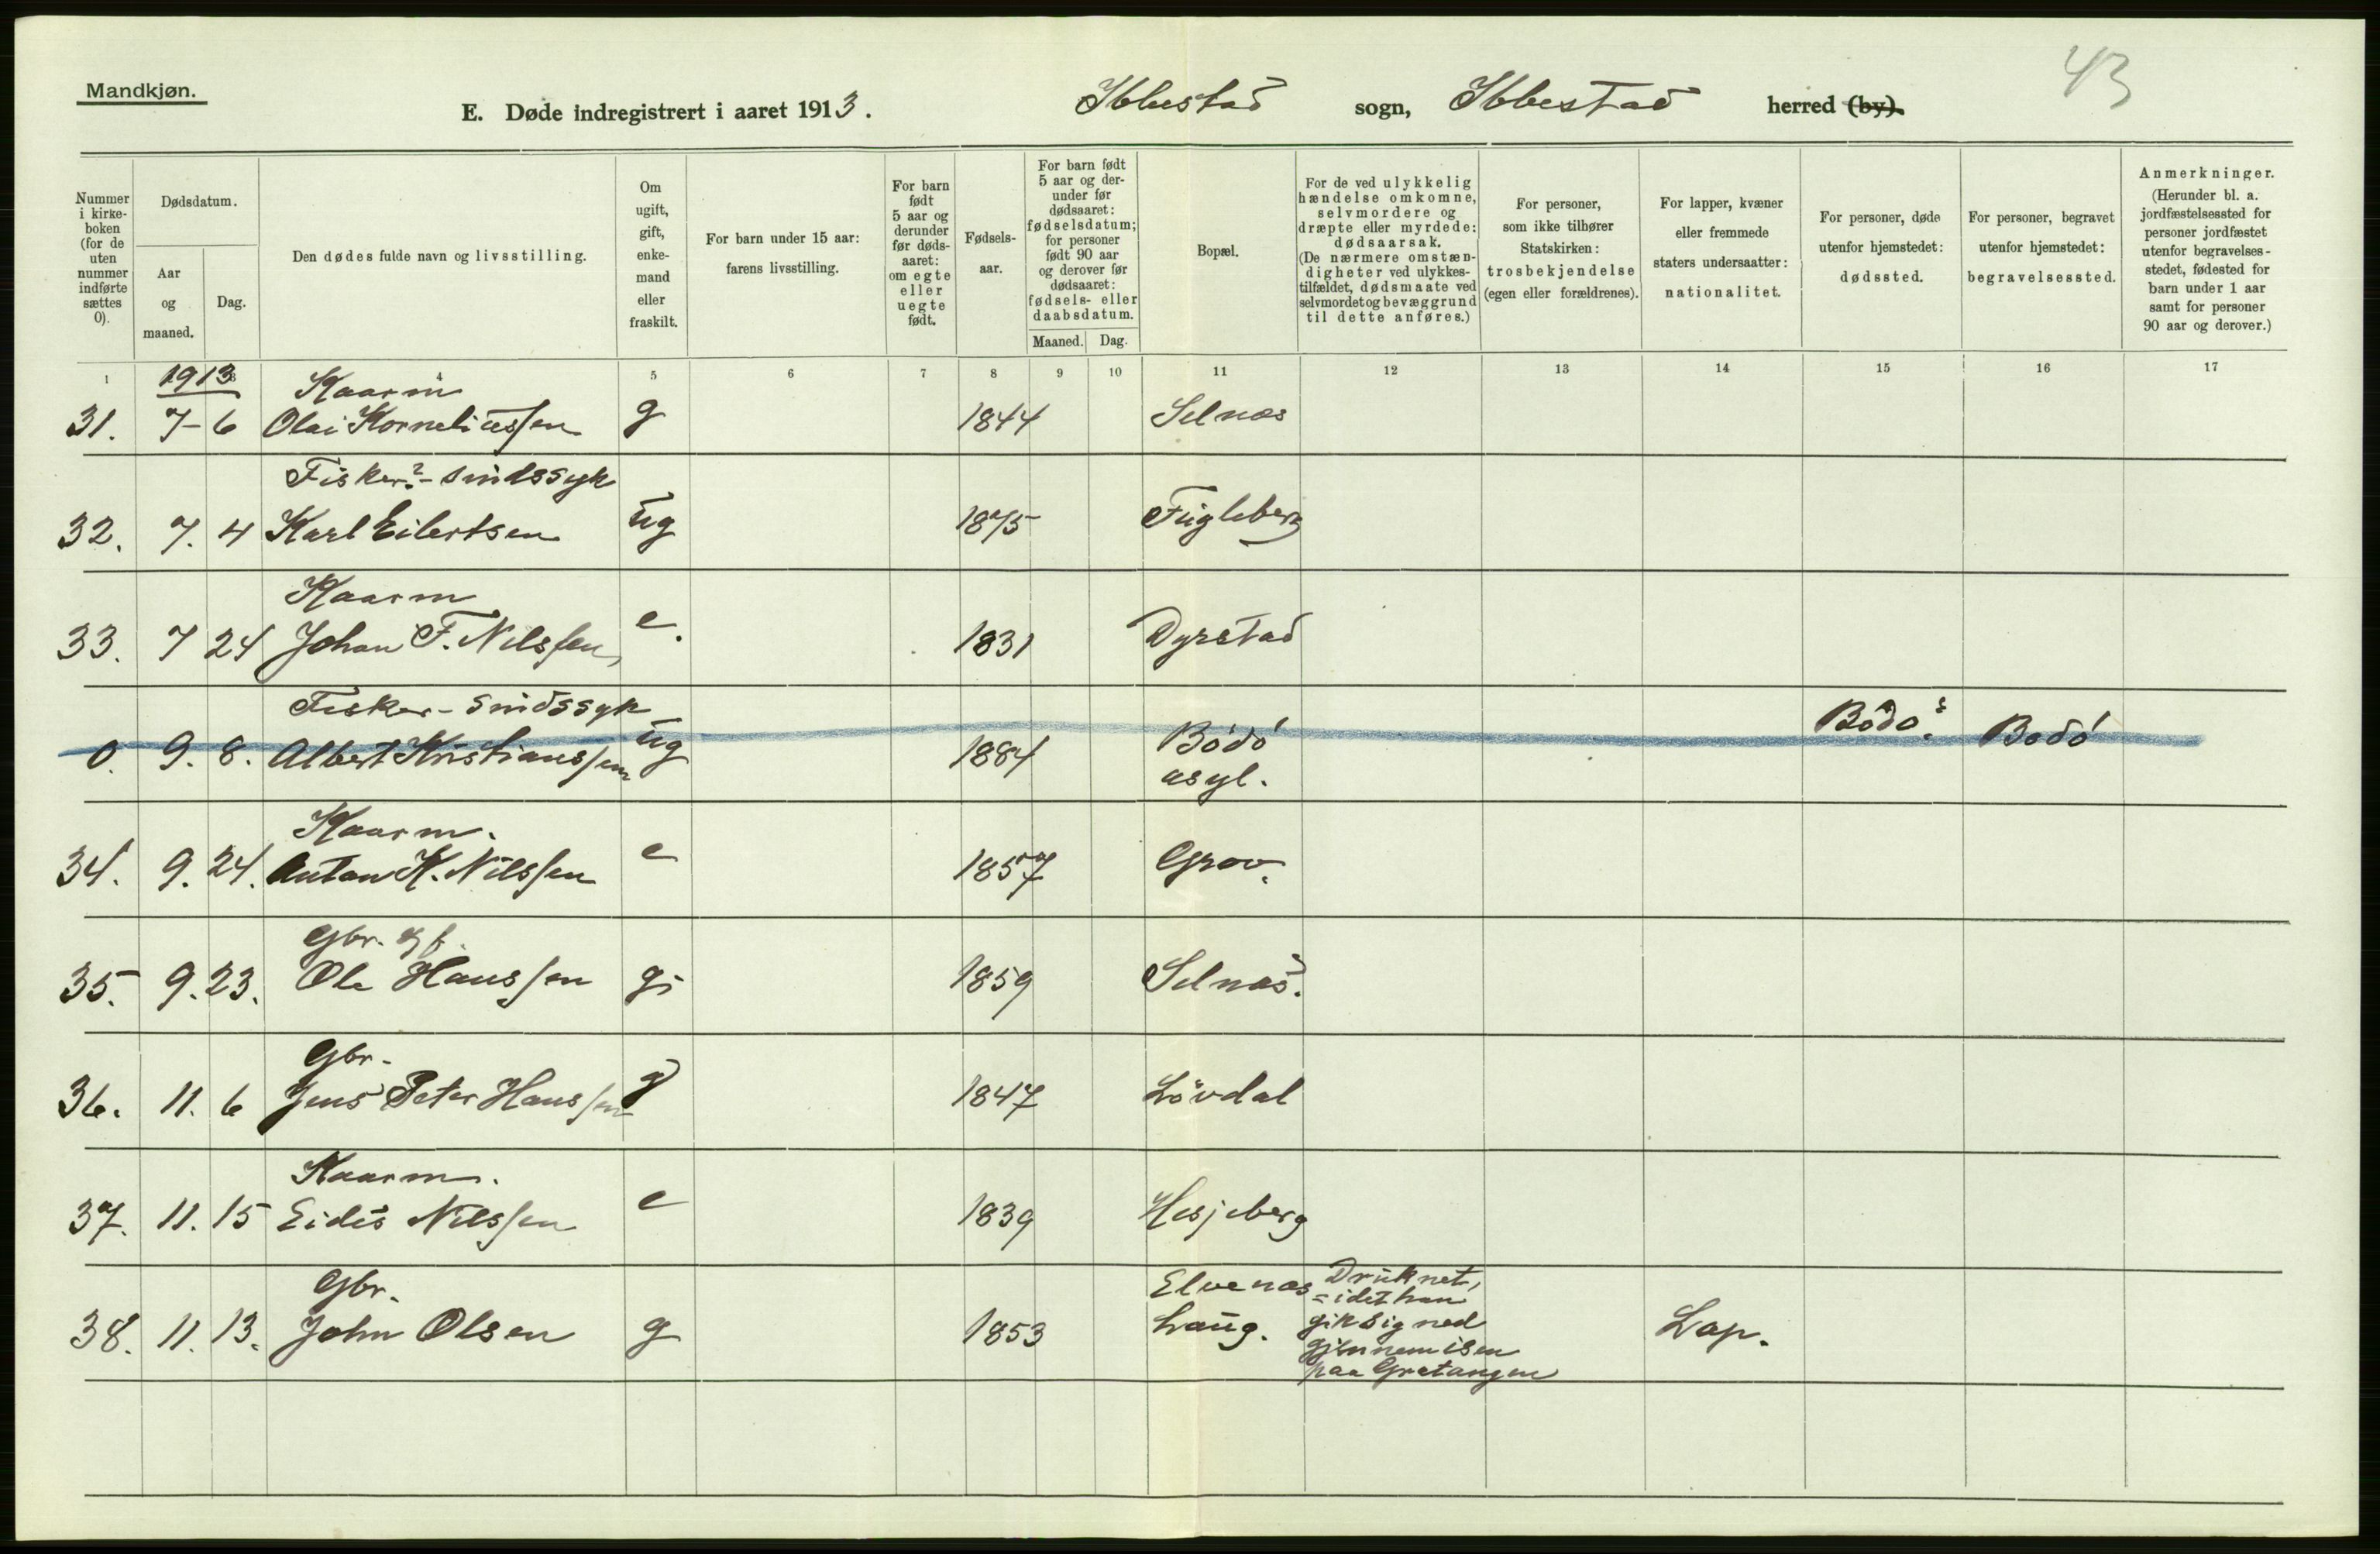 Mandkjøn.
43
E. Døde indregistrert i aaret 1913.
Ibbestad sogn, Ibbestad herred (by).
Nummer i kirkeboken (for de uten nummer indførte sættes 0).
Dødsdatum.
Aar og maaned.
Dag.
Den dødes fulde navn og livsstilling.
Om ugift, gift, enkemand eller fraskilt.
For barn under 15 aar: farens livsstilling.
For barn født 5 aar og derunder før dødsaaret: om egte eller uegte født.
Fødselsaar.
For barn født 5 aar og derunder før dødsaaret: fødselsdatum; for personer født 90 aar og derover før dødsaaret: fødsels- eller daabsdatum.
Maaned. Dag.
Bopæl.
For de ved ulykkelig hændelse omkomne, selvmordere og dræpte eller myrdede: dødsaarsak. (De nærmere omstændigheter ved ulykkestilfældet, dødsmaate ved selvmordet og bevæggrund til dette anføres.)
For personer, som ikke tilhører Statskirken: trosbekjendelse (egen eller forældrenes).
For lapper, kvæner eller fremmede staters undersaatter: nationalitet.
For personer, døde utenfor hjemstedet: dødssted.
For personer, begravet utenfor hjemstedet: begravelsessted.
Anmerkninger. (Herunder bl. a. jordfæstelsessted for personer jordfæstet utenfor begravelsesstedet, fødested for barn under 1 aar samt for personer 90 aar og derover.)
1 3 4 5 6 7 8 9 10 11 12 13 14 15 16 17
1913
Kaarm
31. 7- 6 Olai Korneliussen g 1844 Selnæs
Fisker?- sindssyk
32. 7. 4 Karl Eilertsen ug 1875 Fugleberg
Kaarm
33. 7 24 Johan F. Nilssen, e. 1831 Dyrstad
Fisker- sindssyk
0. 9. 8. Albert Kristianssen ug 1884 Bodó asyl. Bodo? Bodó
Kaarm.
34. 9. 24. Anton K. Nilssen e 1857 Grov.
Gbr. og f.
35. 9. 23. Ole Hanssen gi 1859 Selnæs?
Gbr.
36. 11. 6 Jens Peter Hanssen g 1847 Lövdal
Kaarm.
37. 11. 15 Eidis Nilssen e 1839 Hesjeberg
Gbr.
38. 11. 13. John Olsen g 1853 Elvenæs Laug. Lap.
Druknet,
= idet han
gik sig ned
gjennem isen
paa Gratangen